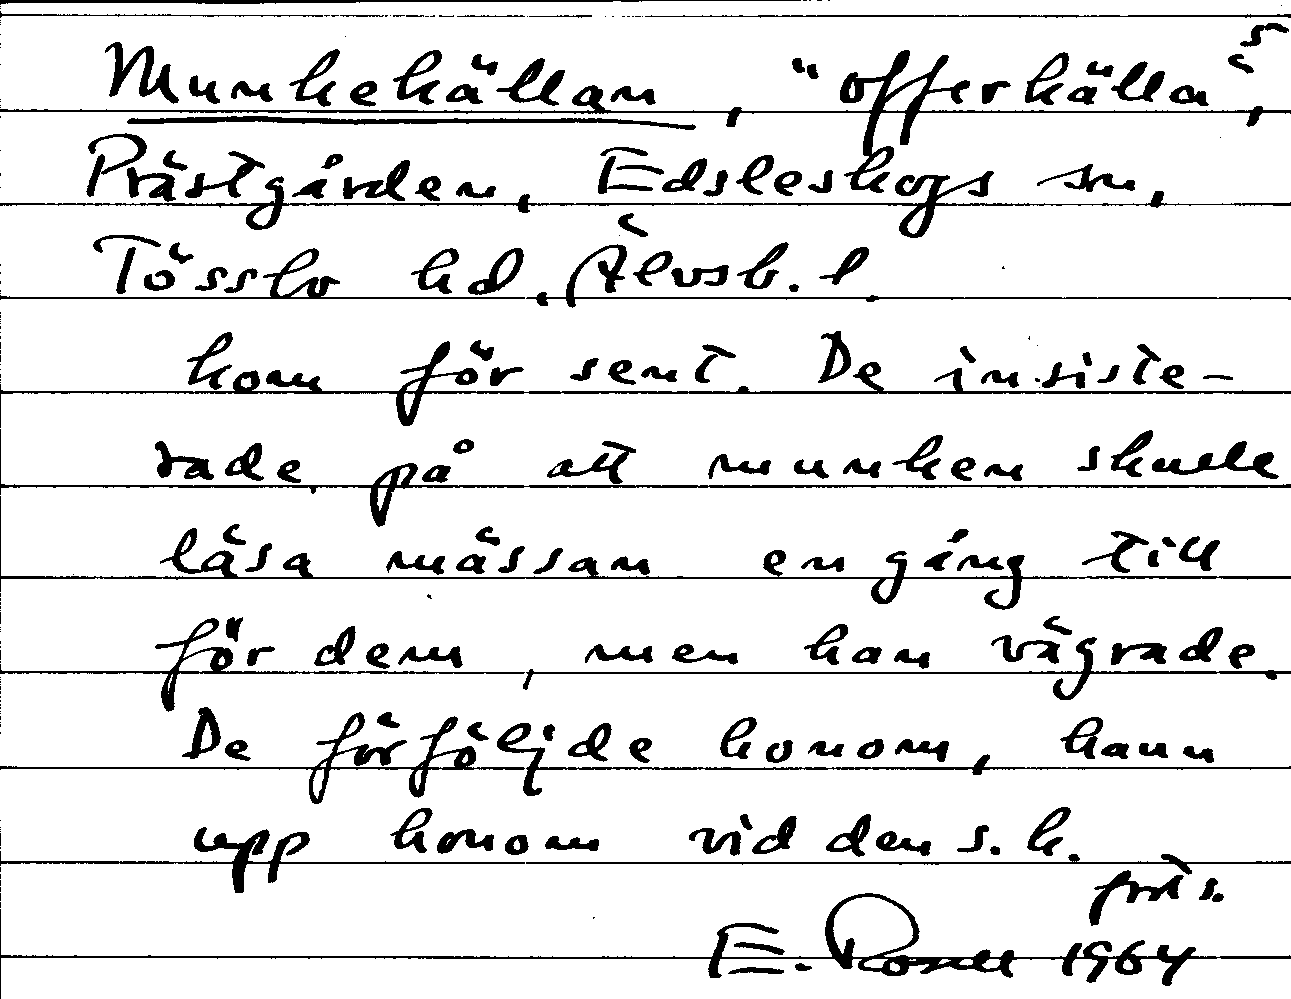 5
Munkekällan, "offerkälla",
Prästgården, Edsleskogs sn,
Tössbo hd, Älvsb. l.
kom för sent. De insiste-
rade på att munken skulle
läsa mässan en gång till
för dem, men han vägrade.
De förföljde honom, hann
upp honom vid den s.k.
forts.
E. Rosell 1964